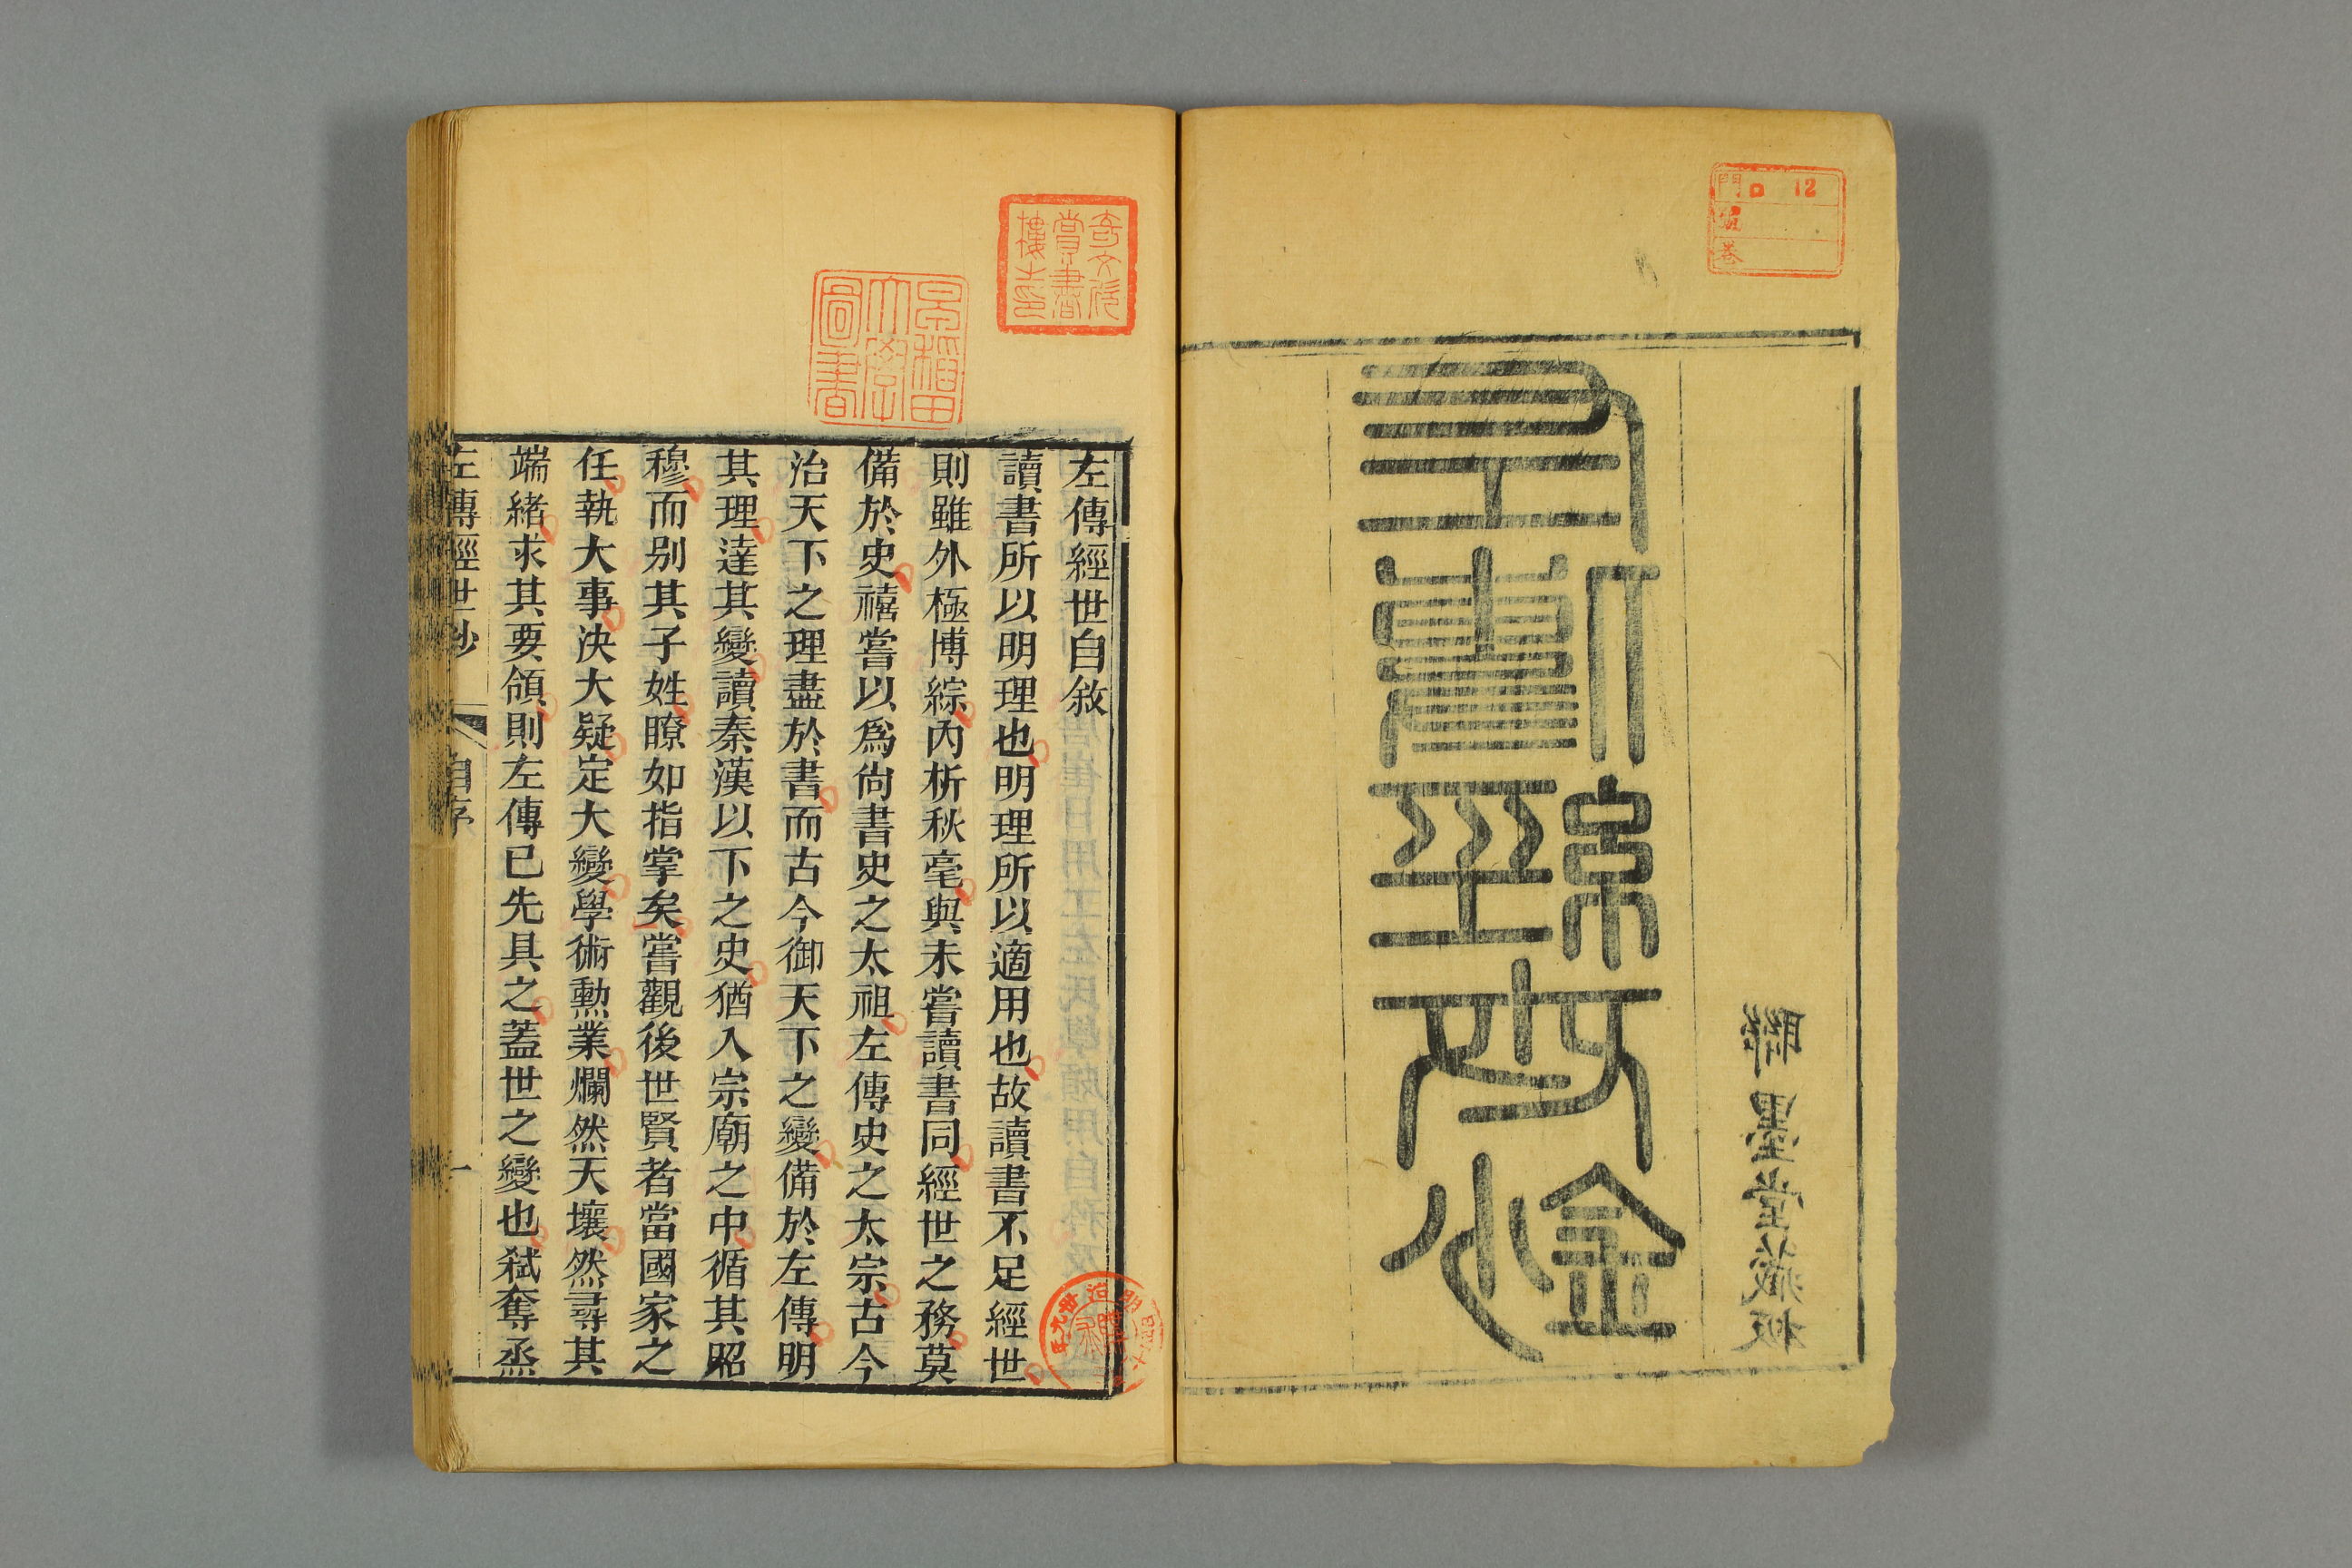 門 ロ 12
號
卷
聯墨堂藏板
左傳經世鈔
奇文欣
賞書
樓主印
早稻田
大學
圖書
左傳經世自敘
讀書所以明理也明理所以適用也故讀書不足經世
則雖外極博綜內析秋毫與未嘗讀書同經世之務莫
備於史禧嘗以爲尙書史之太祖左傳史之太宗古今
治天下之理盡於書而古今御天下之變備於左傳明
其理達其變讀秦漢以下之史猶入宗廟之中循其昭
穆而別其子姓瞭如指掌矣嘗觀後世賢者當國家之
任執大事決大疑定大變學術勳業爛然天壤然尋其
端緒求其要領則左傳已先具之蓋世之變也弒奪烝
左傳經世鈔 自序 一